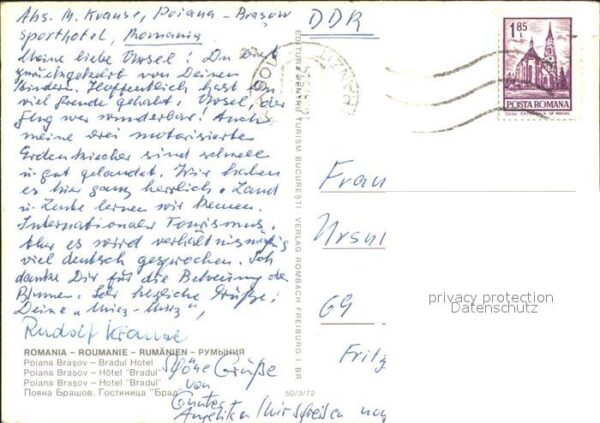 Abs. M. Krause, Poiana - Braşov
Sporthotel, Romania
DDR
Meine liebe Ursel! Du bist
zurückgekehrt von Deinen
Kindern. Hoffentlich hast Du
viel Freude gehabt. Ursel, der
Flug war wunderbar! Auch
meine drei motorisierte
sind schnell
u. gut gelandet. Wir haben
es hier ganz herrlich. Land
u. Leute lernen wir kennen.
Internationaler Tourismus.
Aber es wird verhältnismäßig
viel deutsch gesprochen. Ich
danke Dir für die Betreuung der
Blumen. Sehr herzliche Grüße,
Deine „Miez-Miez",
Rudolf Krause
ROMANIA – ROUMANIE – RUMÄNIEN – РУМЫНИЯ
Poiana Braşov – Bradul Hotel
Poiana Braşov – Hôtel "Bradul"
Poiana Braşov – Hotel "Bradul"
Пояна Брашов. Гостиница "Брад
Schöne Grüße
von
Günter +
Angelika (wir schreiben noch
50/3/72
EDITURA PENTRU TURISM BUCUREŞTI VERLAG ROMBACH FREIBURG I. BR
1,85 L
POSTA ROMANA
CLUJ CATEDRALA SF. MIHAIL
Frau
Ursul
69
Fritz
privacy protection
Datenschutz